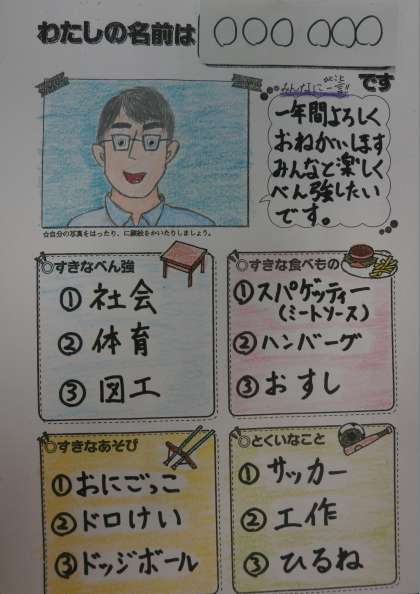 わたしの名前は 〇〇〇 〇〇〇 です
みんなに一言
一年間よろしく
おねがいします
みんなと楽しく
べん強したい
です。
☆自分の写真をはったり、に顔絵をかいたりしましょう。
◎すきなべん強
①社会
②体育
③図工
◎すきな食べもの
①スパゲッティー
(ミートソース)
②ハンバーグ
③おすし
◎すきなあそび
①おにごっこ
②ドロけい
③ドッジボール
◎とくいなこと
①サッカー
②工作
③ひるね